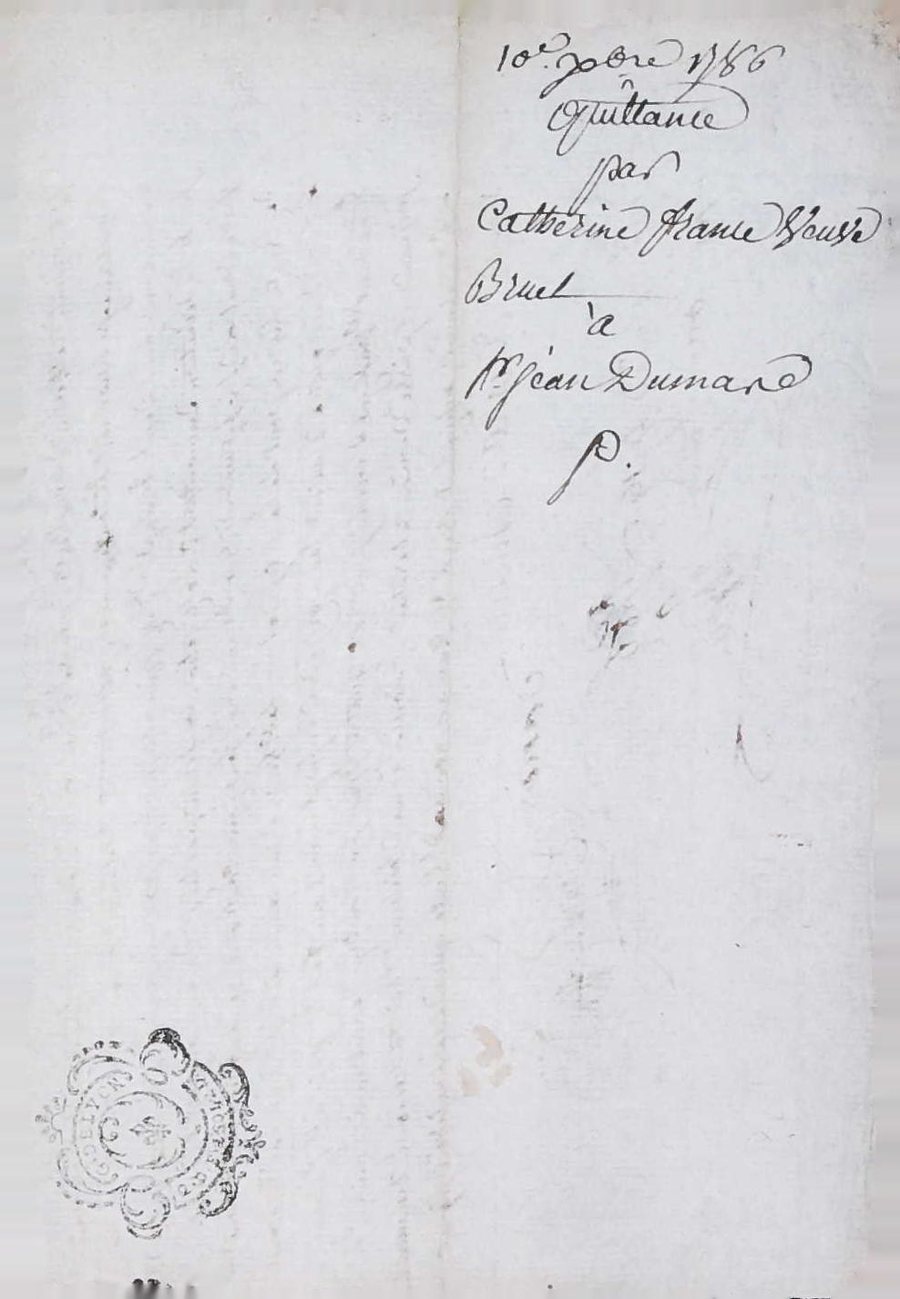 10e. xbre 1786
Quittance
par
Catherine france Veuve
Bruel
à
sr jean Dumare
P.
DELYON